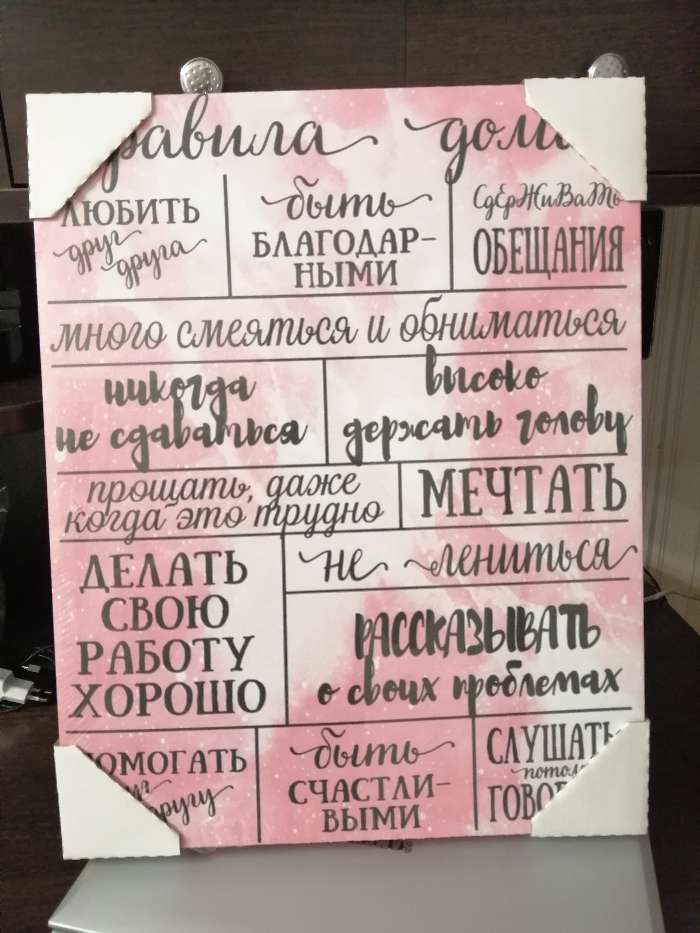 равила дома
ЛЮБИТЬ
друг
друга
быть
БЛАГОДАР-
НЫМИ
СдЕрЖиВаТь
ОБЕЩАНИЯ
много смеяться и обниматься
никогда
не сдаваться
высоко
держать голову
прощать, даже
когда это трудно
МЕЧТАТЬ
ДЕЛАТЬ
СВОЮ
РАБОТУ
ХОРОШО
не лениться
РАССКАЗЫВАТЬ
о своих проблемах
ПОМОГАТЬ
другу
быть
СЧАСТЛИ-
ВЫМИ
СЛУШАТЬ
потом